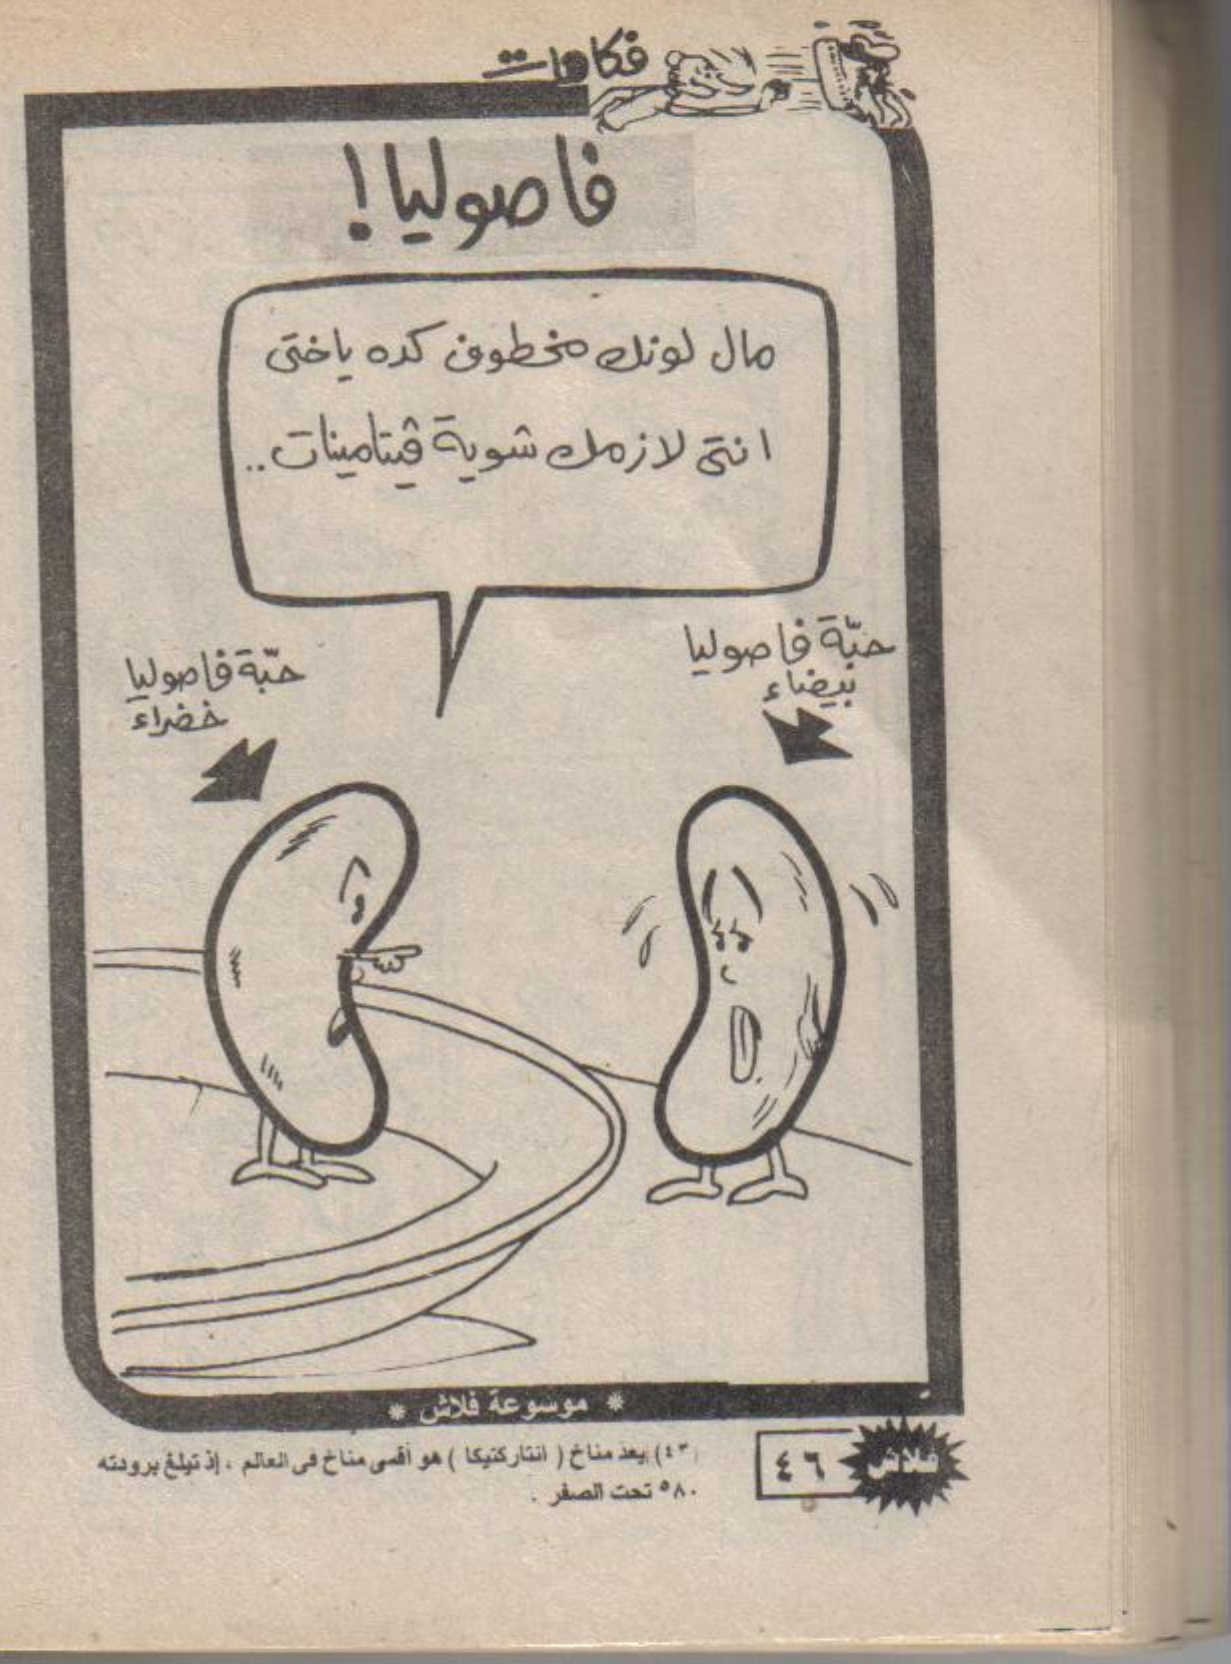 فكاهات
فاصوليا!
مال لونك مخطوف كده ياختى
انتى لازمك شوية ڤيتامينات..
حبّة فاصوليا
بيضاء
حبّة فاصوليا
خضراء
* موسوعة فلاش *
فلاش
٤٦
(٤٣) يعد مناخ ( انتاركتيكا ) هو أقسى مناخ فى العالم ، إذ تبلغ برودته
٨٠° تحت الصفر .